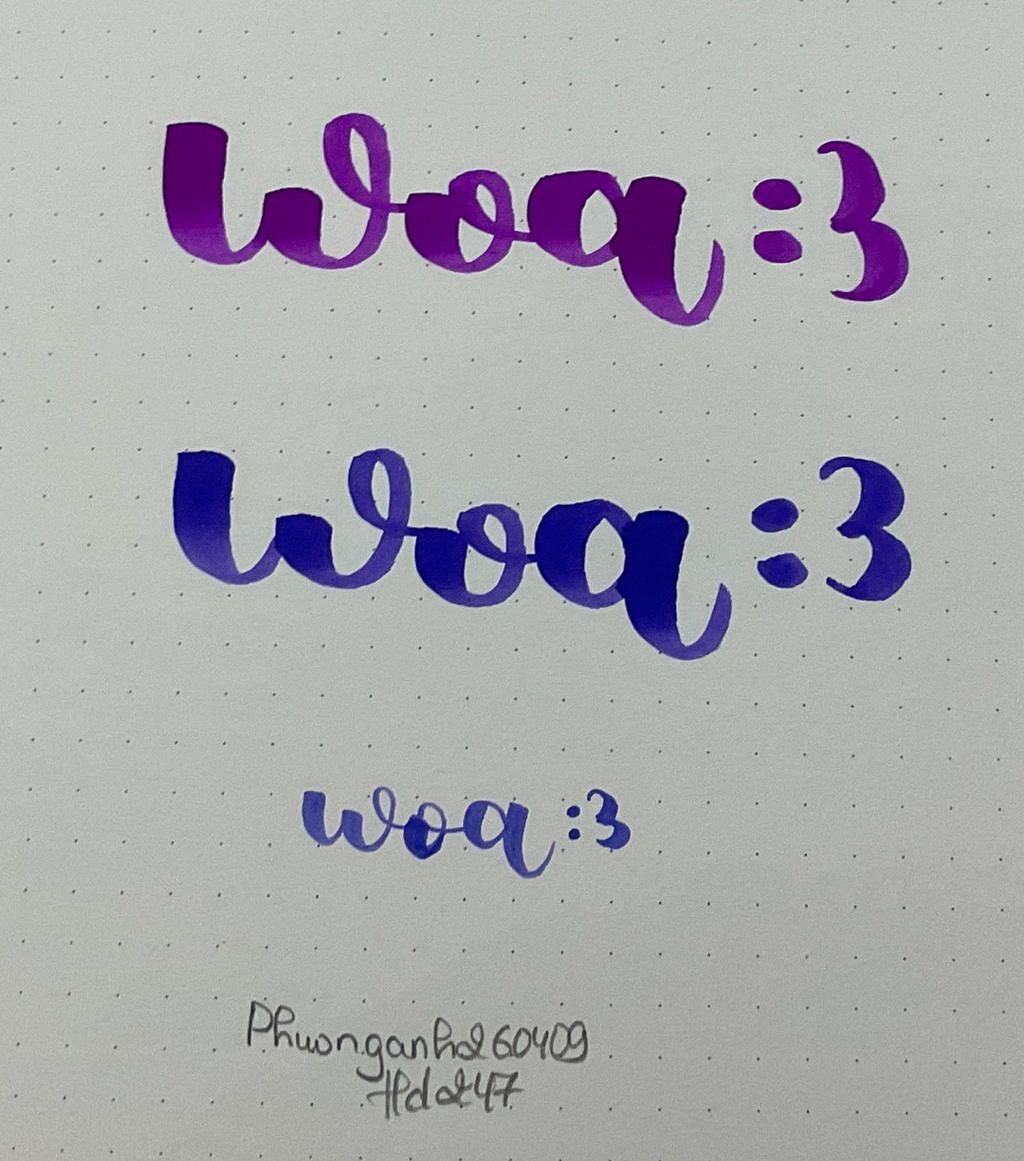 woa :3
woa :3
woa :3
Phuonganh260409
#d247